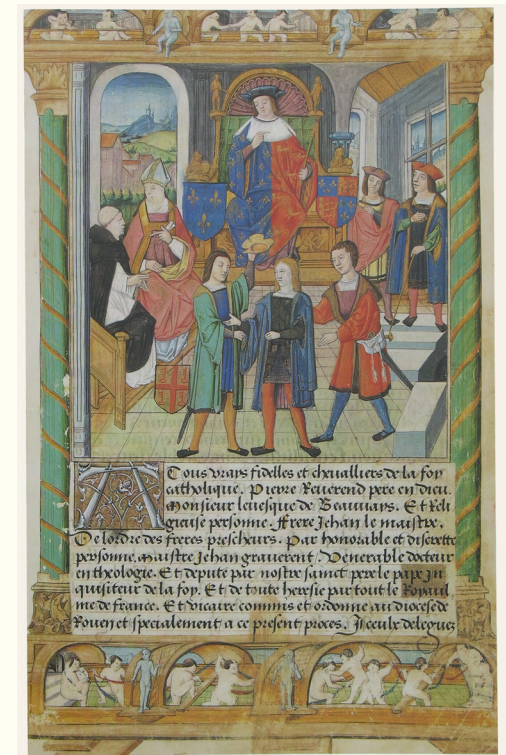 A Tous vrays fidelles et chevalliers de la foy
catholique. Pierre Reverend pere en dieu.
Monsieur levesque de Beauvays. Et Reli
gieuse personne. Frere Jehan le maistre.
De lordre des freres prescheurs. Par honorable et discrette
personne. Maistre Jehan graverent. Venerable docteur
en theologie. Et depute par nostre sainct pere le pape In
quisiteur de la foy. Et de toute heresie par tout le Royaul
me de france. Et vicaire commis et ordonne au diocese de
Rouen et specialement a ce present proces. Iceulx deleguez